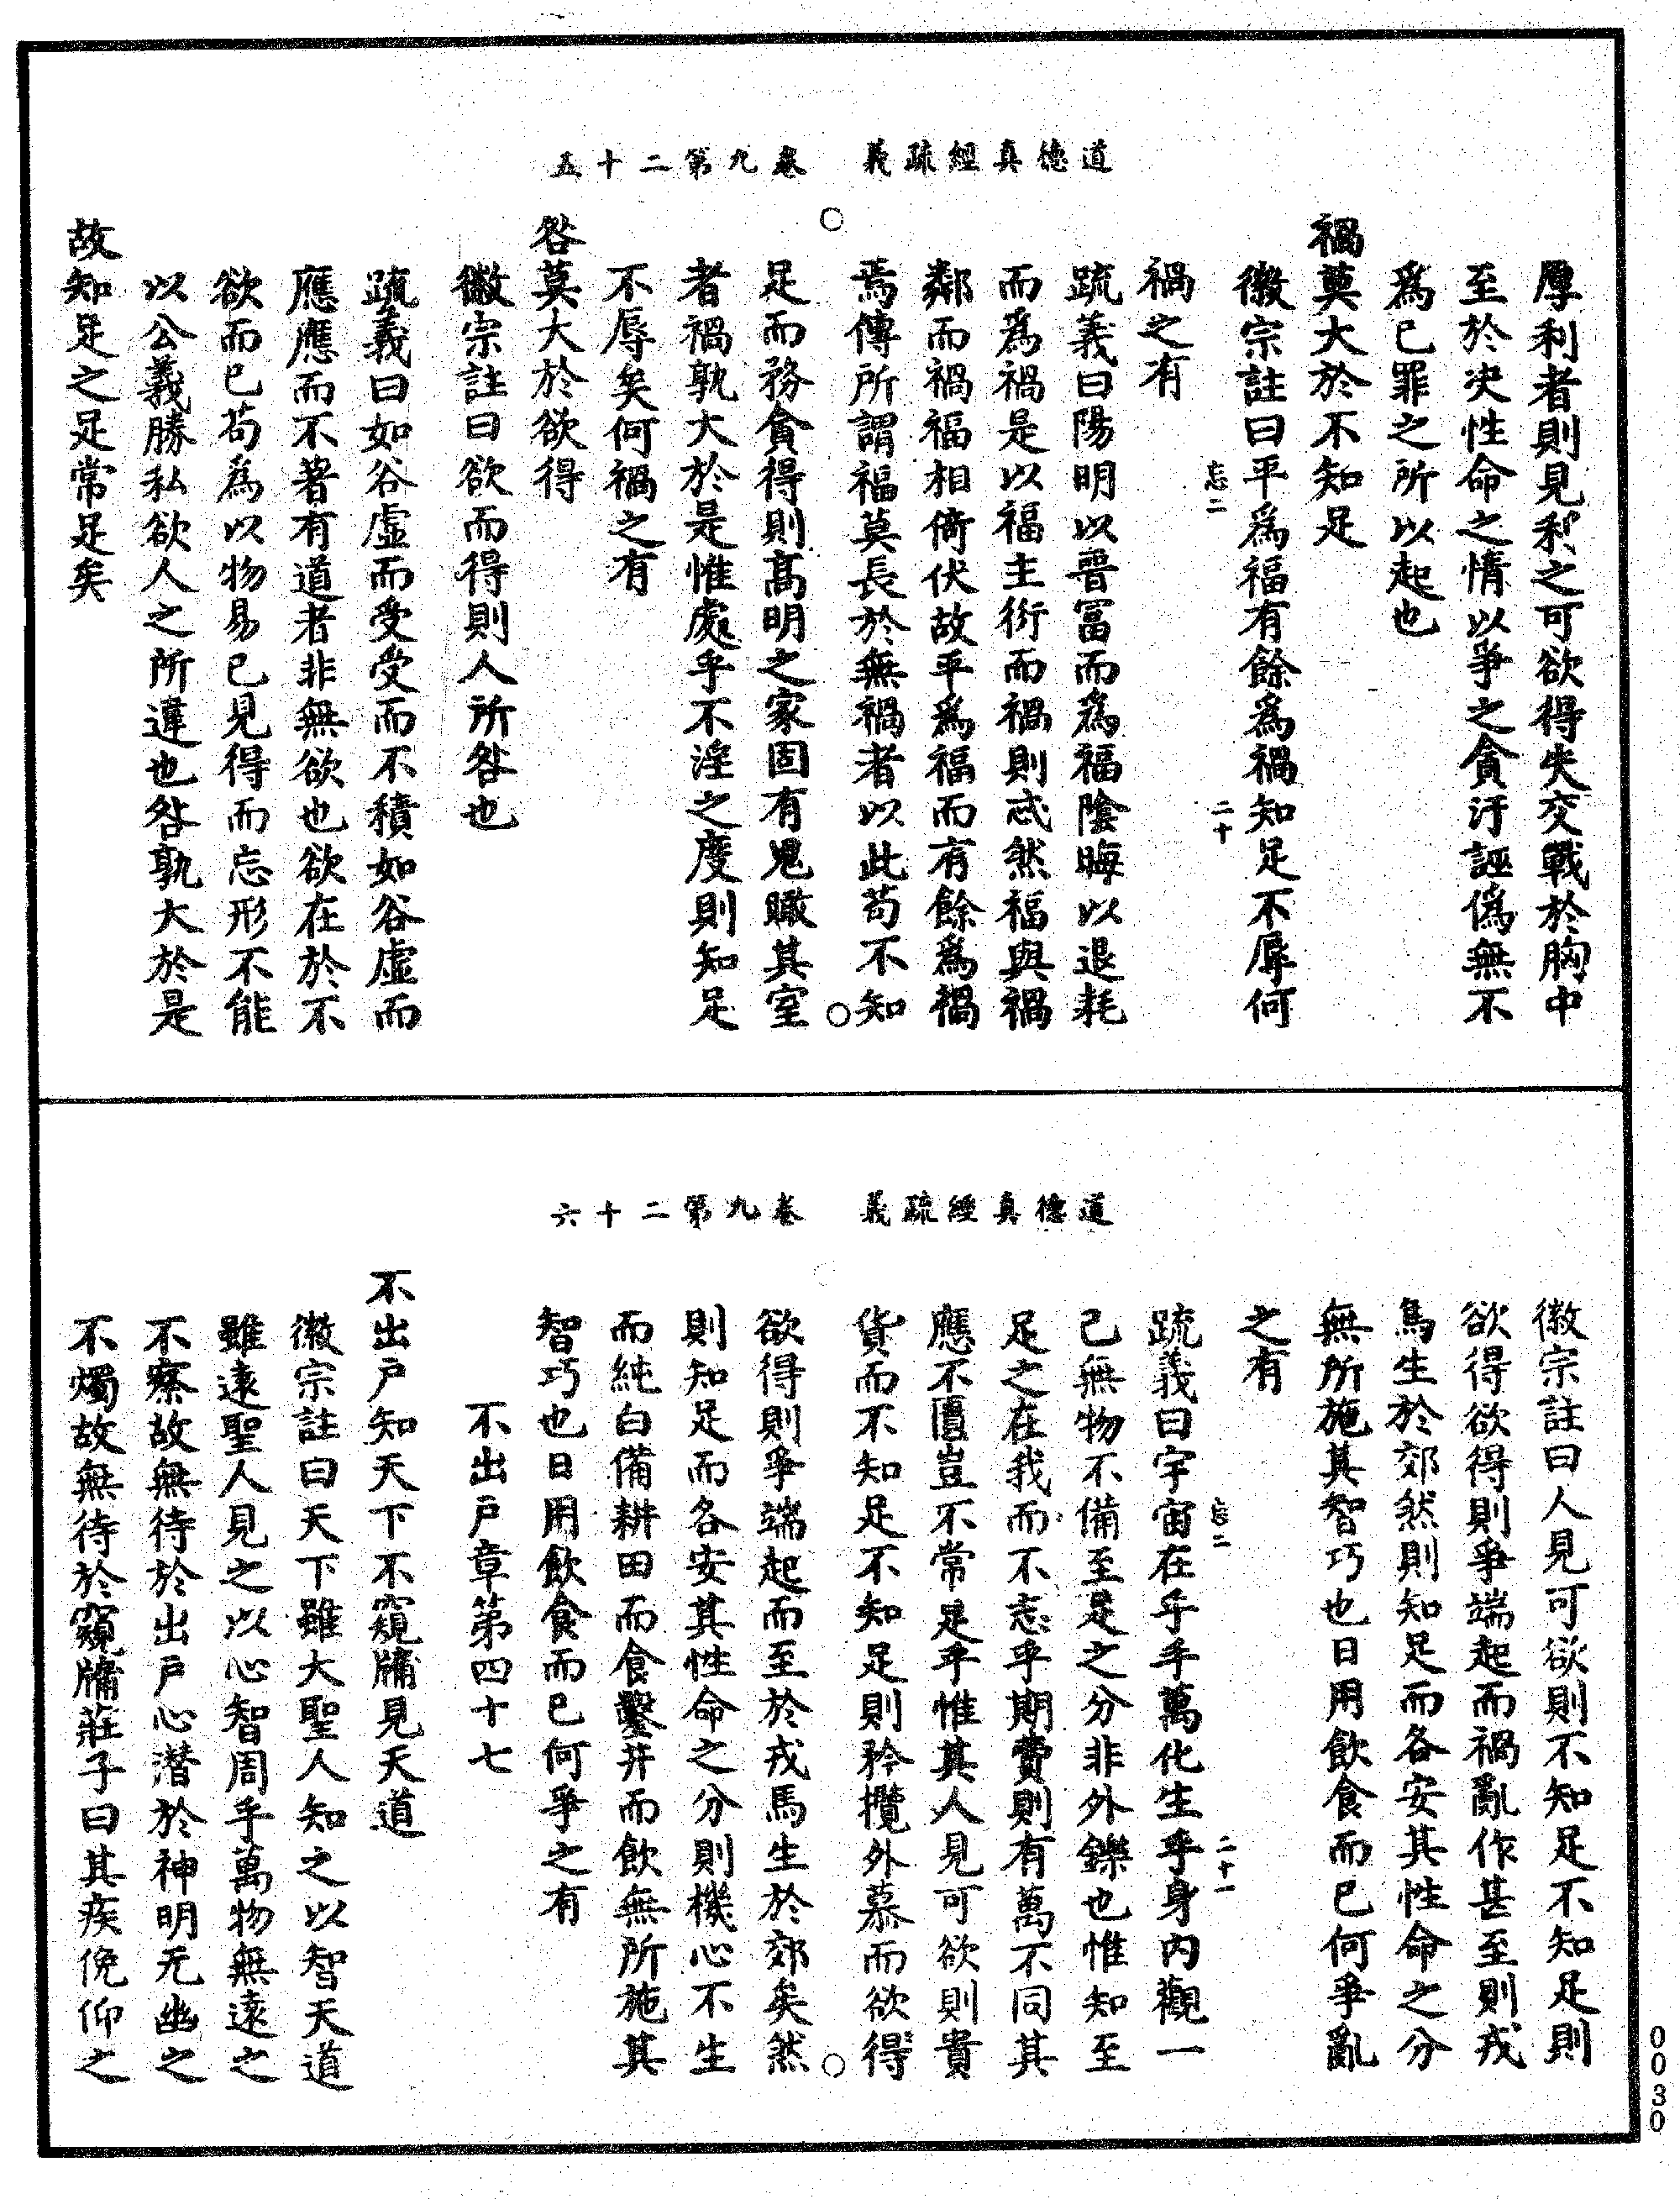 道德真經疏義　卷九第二十五
厚利者則見利之可欲得失交戰於胸中
至於決性命之情以爭之貪汙誣偽無不
為已罪之所以起也
禍莫大於不知足
徽宗註曰平為福有餘為禍知足不辱何
忘二　二十
禍之有
疏義曰陽明以晋冨而為福陰晦以退耗
而為禍是以福主衍而禍則忒然福與禍
鄰而禍福相倚伏故平為福而有餘為禍
焉傳所謂福莫長於無禍者以此苟不知
足而務貪得則髙明之家固有鬼瞰其室
者禍孰大於是惟處乎不淫之度則知足
不辱矣何禍之有
咎莫大於欲得
徽宗註曰欲而得則人所咎也
疏義曰如谷虛而受受而不積如谷虛而
應應而不著有道者非無欲也欲在於不
欲而已苟為以物易已見得而忘形不能
以公義勝私欲人之所違也咎孰大於是
故知足之足常足矣
道德真經疏義　卷九第二十六
徽宗註曰人見可欲則不知足不知足則
欲得欲得則爭端起而禍亂作甚至則戎
馬生於郊然則知足而各安其性命之分
無所施其智巧也日用飲食而已何爭亂
之有
忘二　二十一
疏義曰宇宙在乎手萬化生乎身内觀一
己無物不備至足之分非外鑠也惟知至
足之在我而不志乎期費則有萬不同其
應不匱豈不常足乎惟其人見可欲則貴
貨而不知足不知足則矜攬外慕而欲得
欲得則爭端起而至於戎馬生於郊矣然
則知足而各安其性命之分則機心不生
而純白備耕田而食鑿井而飲無所施其
智巧也日用飲食而已何爭之有
不出戶章第四十七
不出戶知天下不窺牖見天道
徽宗註曰天下雖大聖人知之以智天道
雖遠聖人見之以心智周乎萬物無遠之
不察故無待於出戶心潛於神明无幽之
不燭故無待於窺牖莊子曰其疾俛仰之
0030